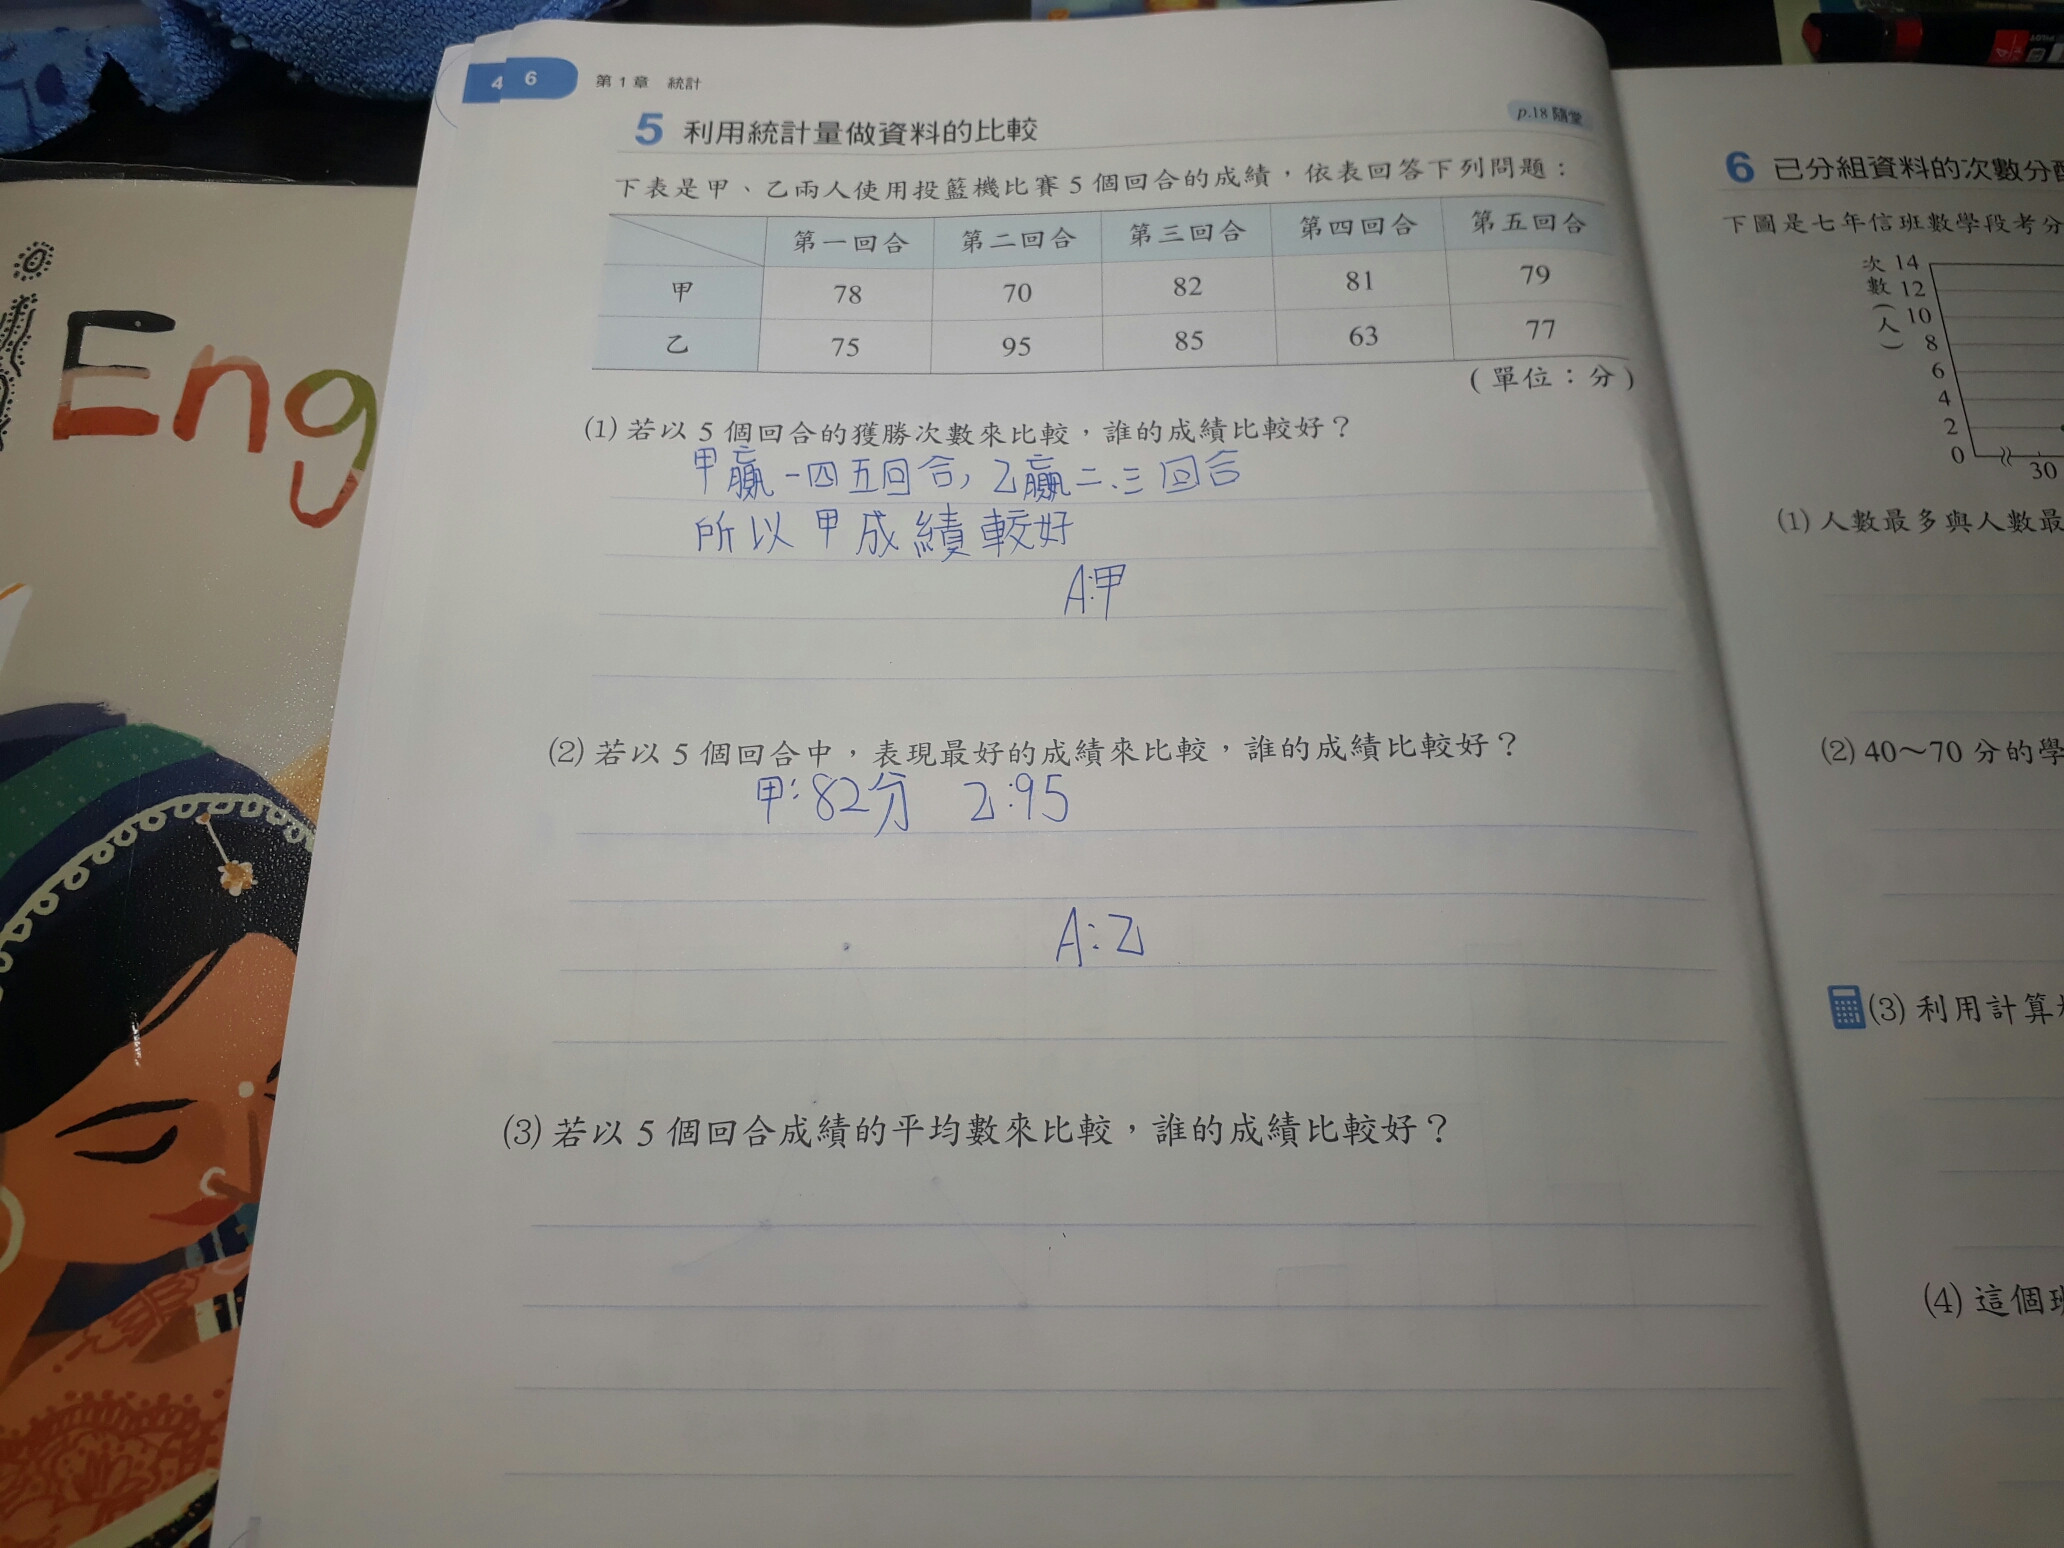 Eng
4 6 第1章 統計
5 利用統計量做資料的比較 p.18 隨堂
下表是甲、乙兩人使用投籃機比賽 5 個回合的成績，依表回答下列問題：
第一回合 第二回合 第三回合 第四回合 第五回合
甲 78 70 82 81 79
乙 75 95 85 63 77
(單位：分)
(1) 若以 5 個回合的獲勝次數來比較，誰的成績比較好？
甲贏一四五回合，乙贏二、三回合
所以甲成績較好
A:甲
(2) 若以 5 個回合中，表現最好的成績來比較，誰的成績比較好？
甲:82分 乙:95
A:乙
(3) 若以 5 個回合成績的平均數來比較，誰的成績比較好？
6 已分組資料的次數分
下圖是七年信班數學段考分
次數(人)
14
12
10
8
6
4
2
0 30
(1) 人數最多與人數最
(2) 40～70 分的學
(3) 利用計算
(4) 這個